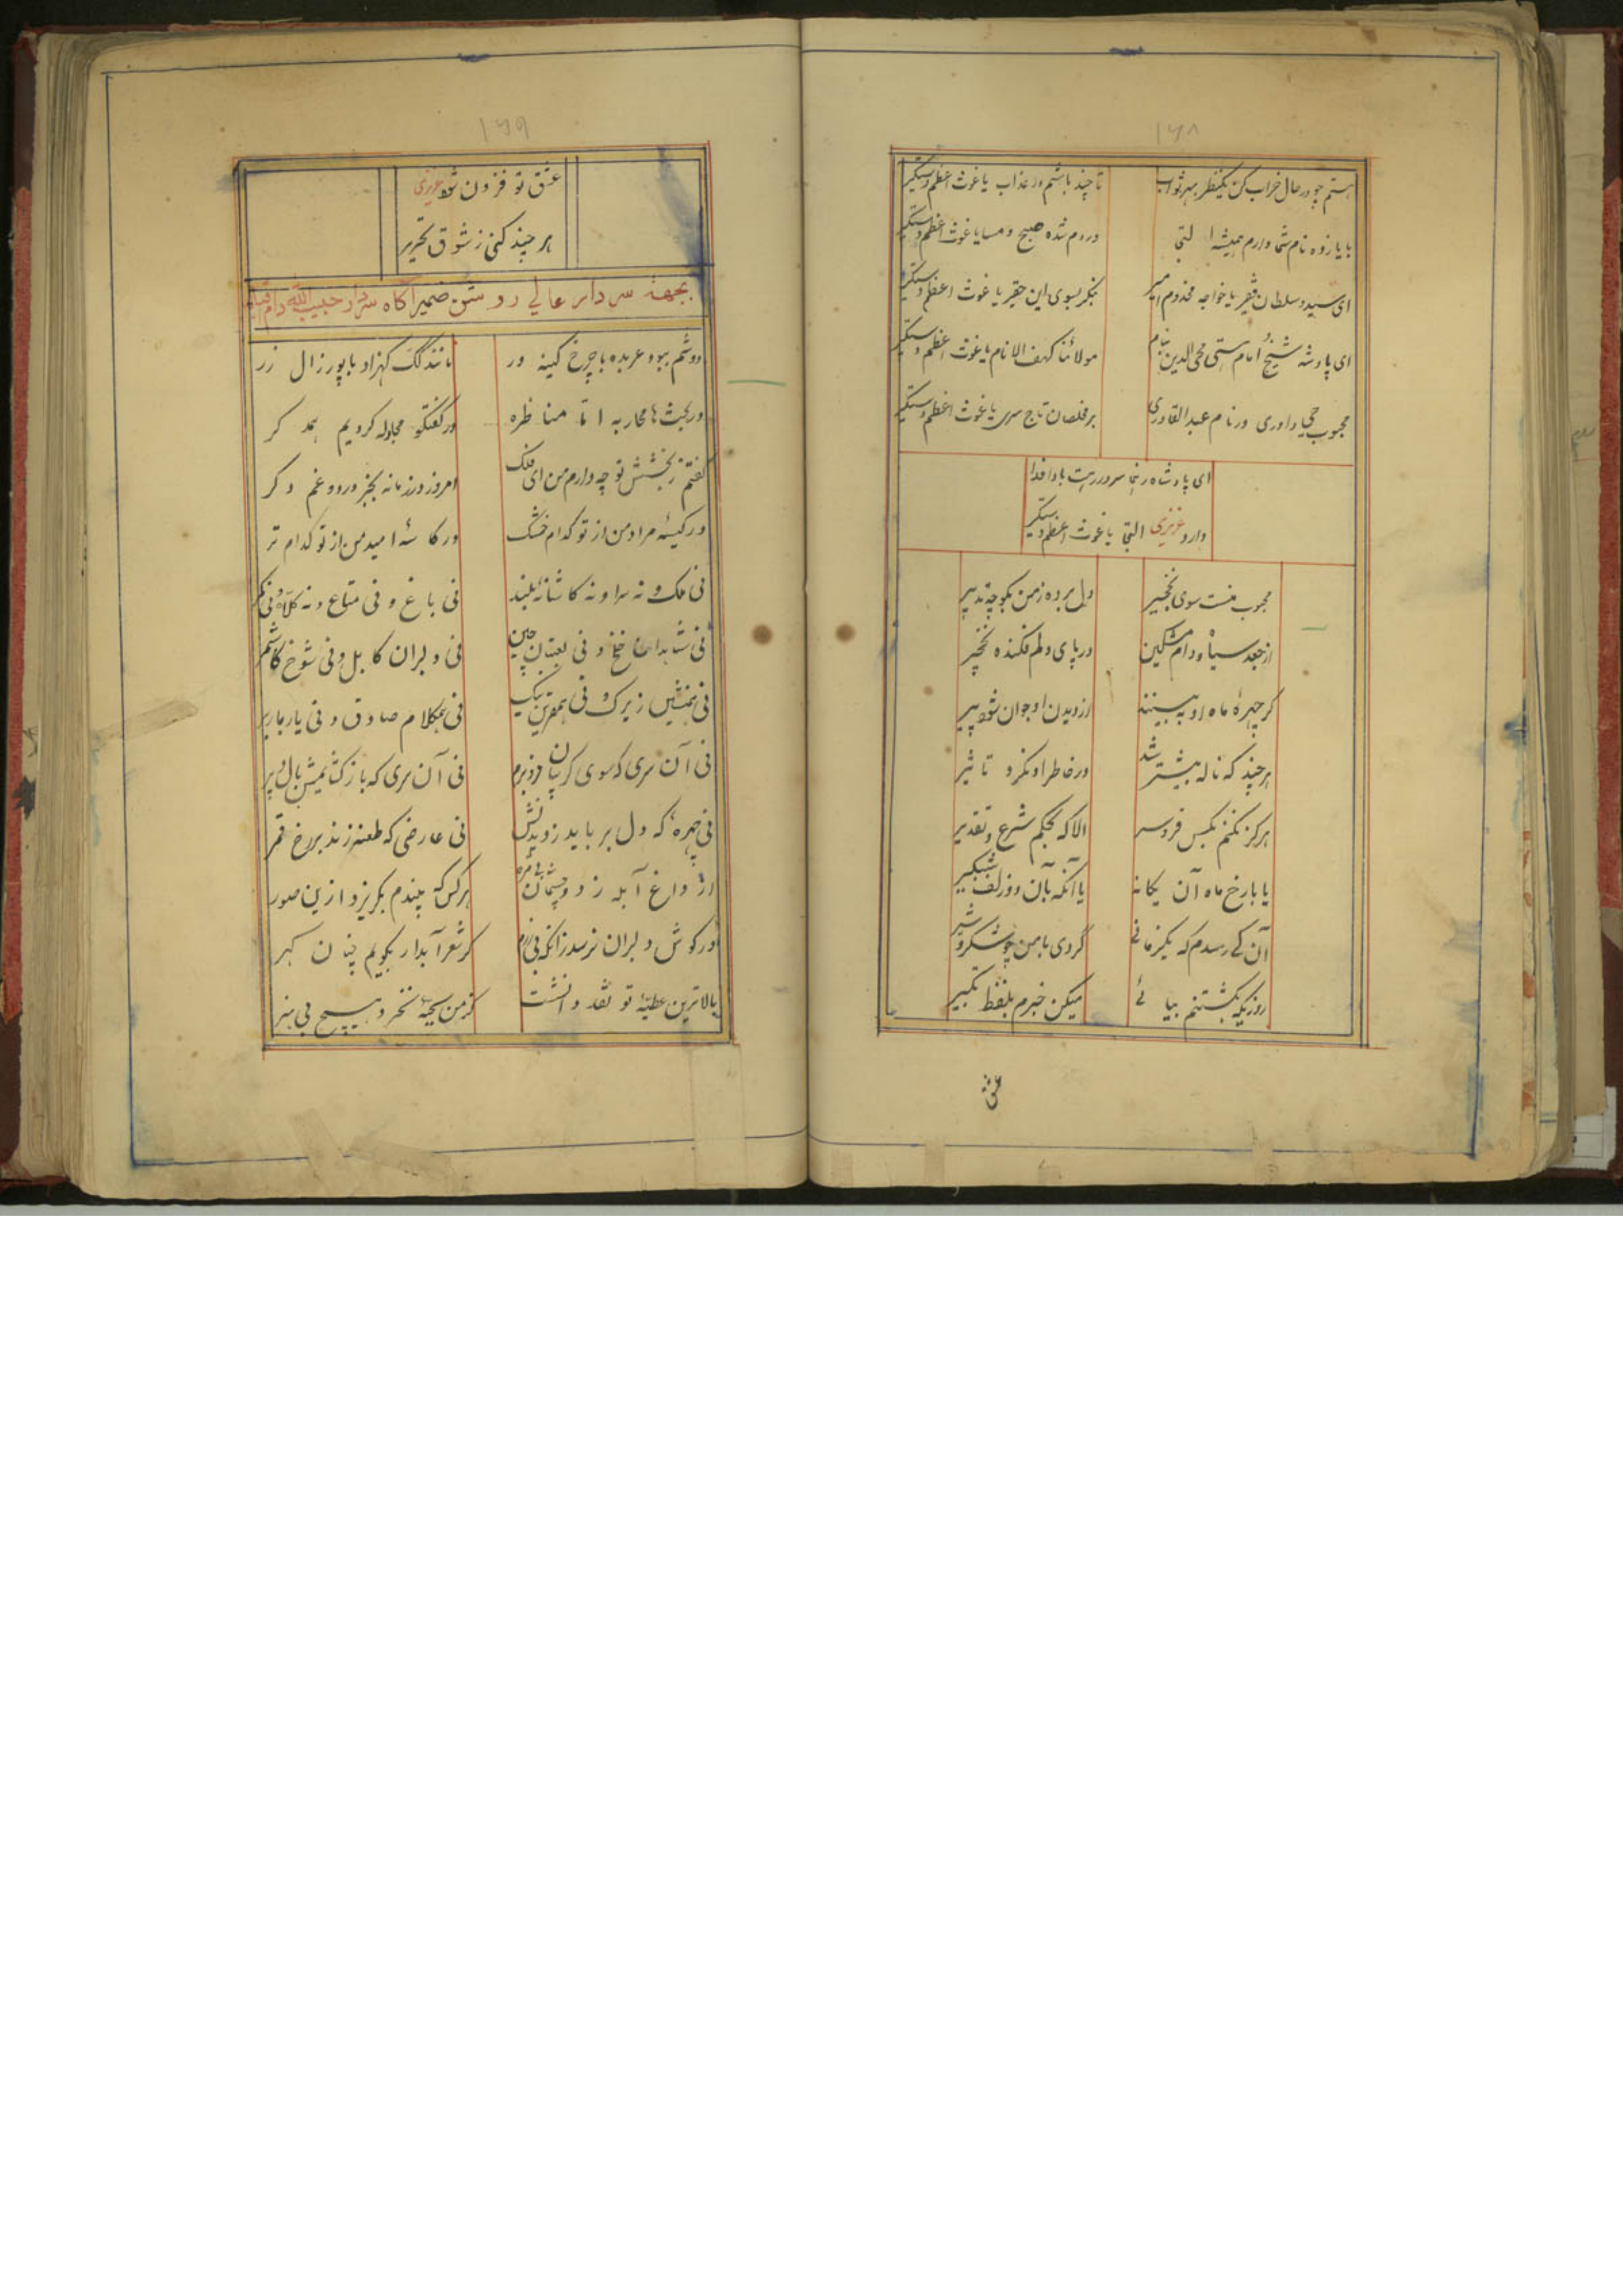 ۱۶۸
هستم چو در حال خراب کن یکنظر بهر ثواب تا چند باشم در عذاب یا غوث اعظم دستگیر
با یازده نام شما دارم همیشه التجی وردم شده صبح و مسا یا غوث اعظم دستگیر
ای سید و سلطان فقیر یا خواجه مخدوم امیر بنکر بسوی این حقیر یا غوث اعظم دستگیر
ای پادشه شیخ امام هستی محی الدین بنام مولانا کهف الانام یا غوث اعظم دستگیر
محبوب حی داوری در نام عبدالقادری بر مخلصان تاج سری یا غوث اعظم دستگیر
ای پادشاه رهنما سر در رهت بادا فدا
دارد عزیزی التجا یا غوث اعظم دستگیر
محبوب منست سوی نخجیر دل برده زمن بکوچه تدبیر
از جعد سیاه و دام مشکین در پای دلم فکنده نخچیر
کر چهرهٔ ماه او به بینند از دیدن او جوان شود پیر
هر چند که ناله بیشتر شد در خاطر او نکرد تاثیر
هرکز نکنم بکس فرو سر الا که بحکم شرع و تقدیر
یا با رخ ماه آن یکانه یا آنکه بآن دو زلف شبکیر
آن کی رسدم که یکزمانی کردی با من چو شکر و شیر
روزیکه بکشتنم بیائی میکن خبرم بلفظ تکبیر
عشق
۱۶۹
عشق تو فزون شود عزیزی
هر چند کنی ز شوق تحریر
بجهة سردار عالی روشن ضمیر آکاه سردار حبیب الله دام
دوشم ببود عربده با چرخ کینه ور مانند کک کهزاد با پور زال زر
در بحث ها محاربه اتا مناظره در کفتکو مجادله کردیم همد کر
کفتم ز بخشش تو چه دارم من ای فلک امروز در زمانه بجز درد و غم دکر
در کیسهٔ مراد من از تو کدام خشک در کاسهٔ امید من از تو کدام تر
نی ملک و نه سرا و نه کاشانهٔ بلند نی باغ و نی متاع و نه کلاه و نی کمر
نی شاهدان خلخ و نی لعبتان چین نی دلبران کابل و نی شوخ کاشمر
نی همنشین زیرک و نی همقرین نیک نی همکلام صادق و نی یار
نی آن سری که سوی کریبان فرو برم نی آن سری که باز کشایمش بال و پر
نی چهرهٔ که دل برباید ز دیدنش نی عارضی که طعنه زند بر رخ قمر
از داغ آبله ز دو چشمان هرکس که بیندم بکریزد ازین صور
در کوش دلبران نرسد زانکه نی زرم کر شعر آبدار بکویم چنان کهر
بالاترین عطیهٔ تو نقد دانشت کز من بحبهٔ نخرد هیچ بی هنر